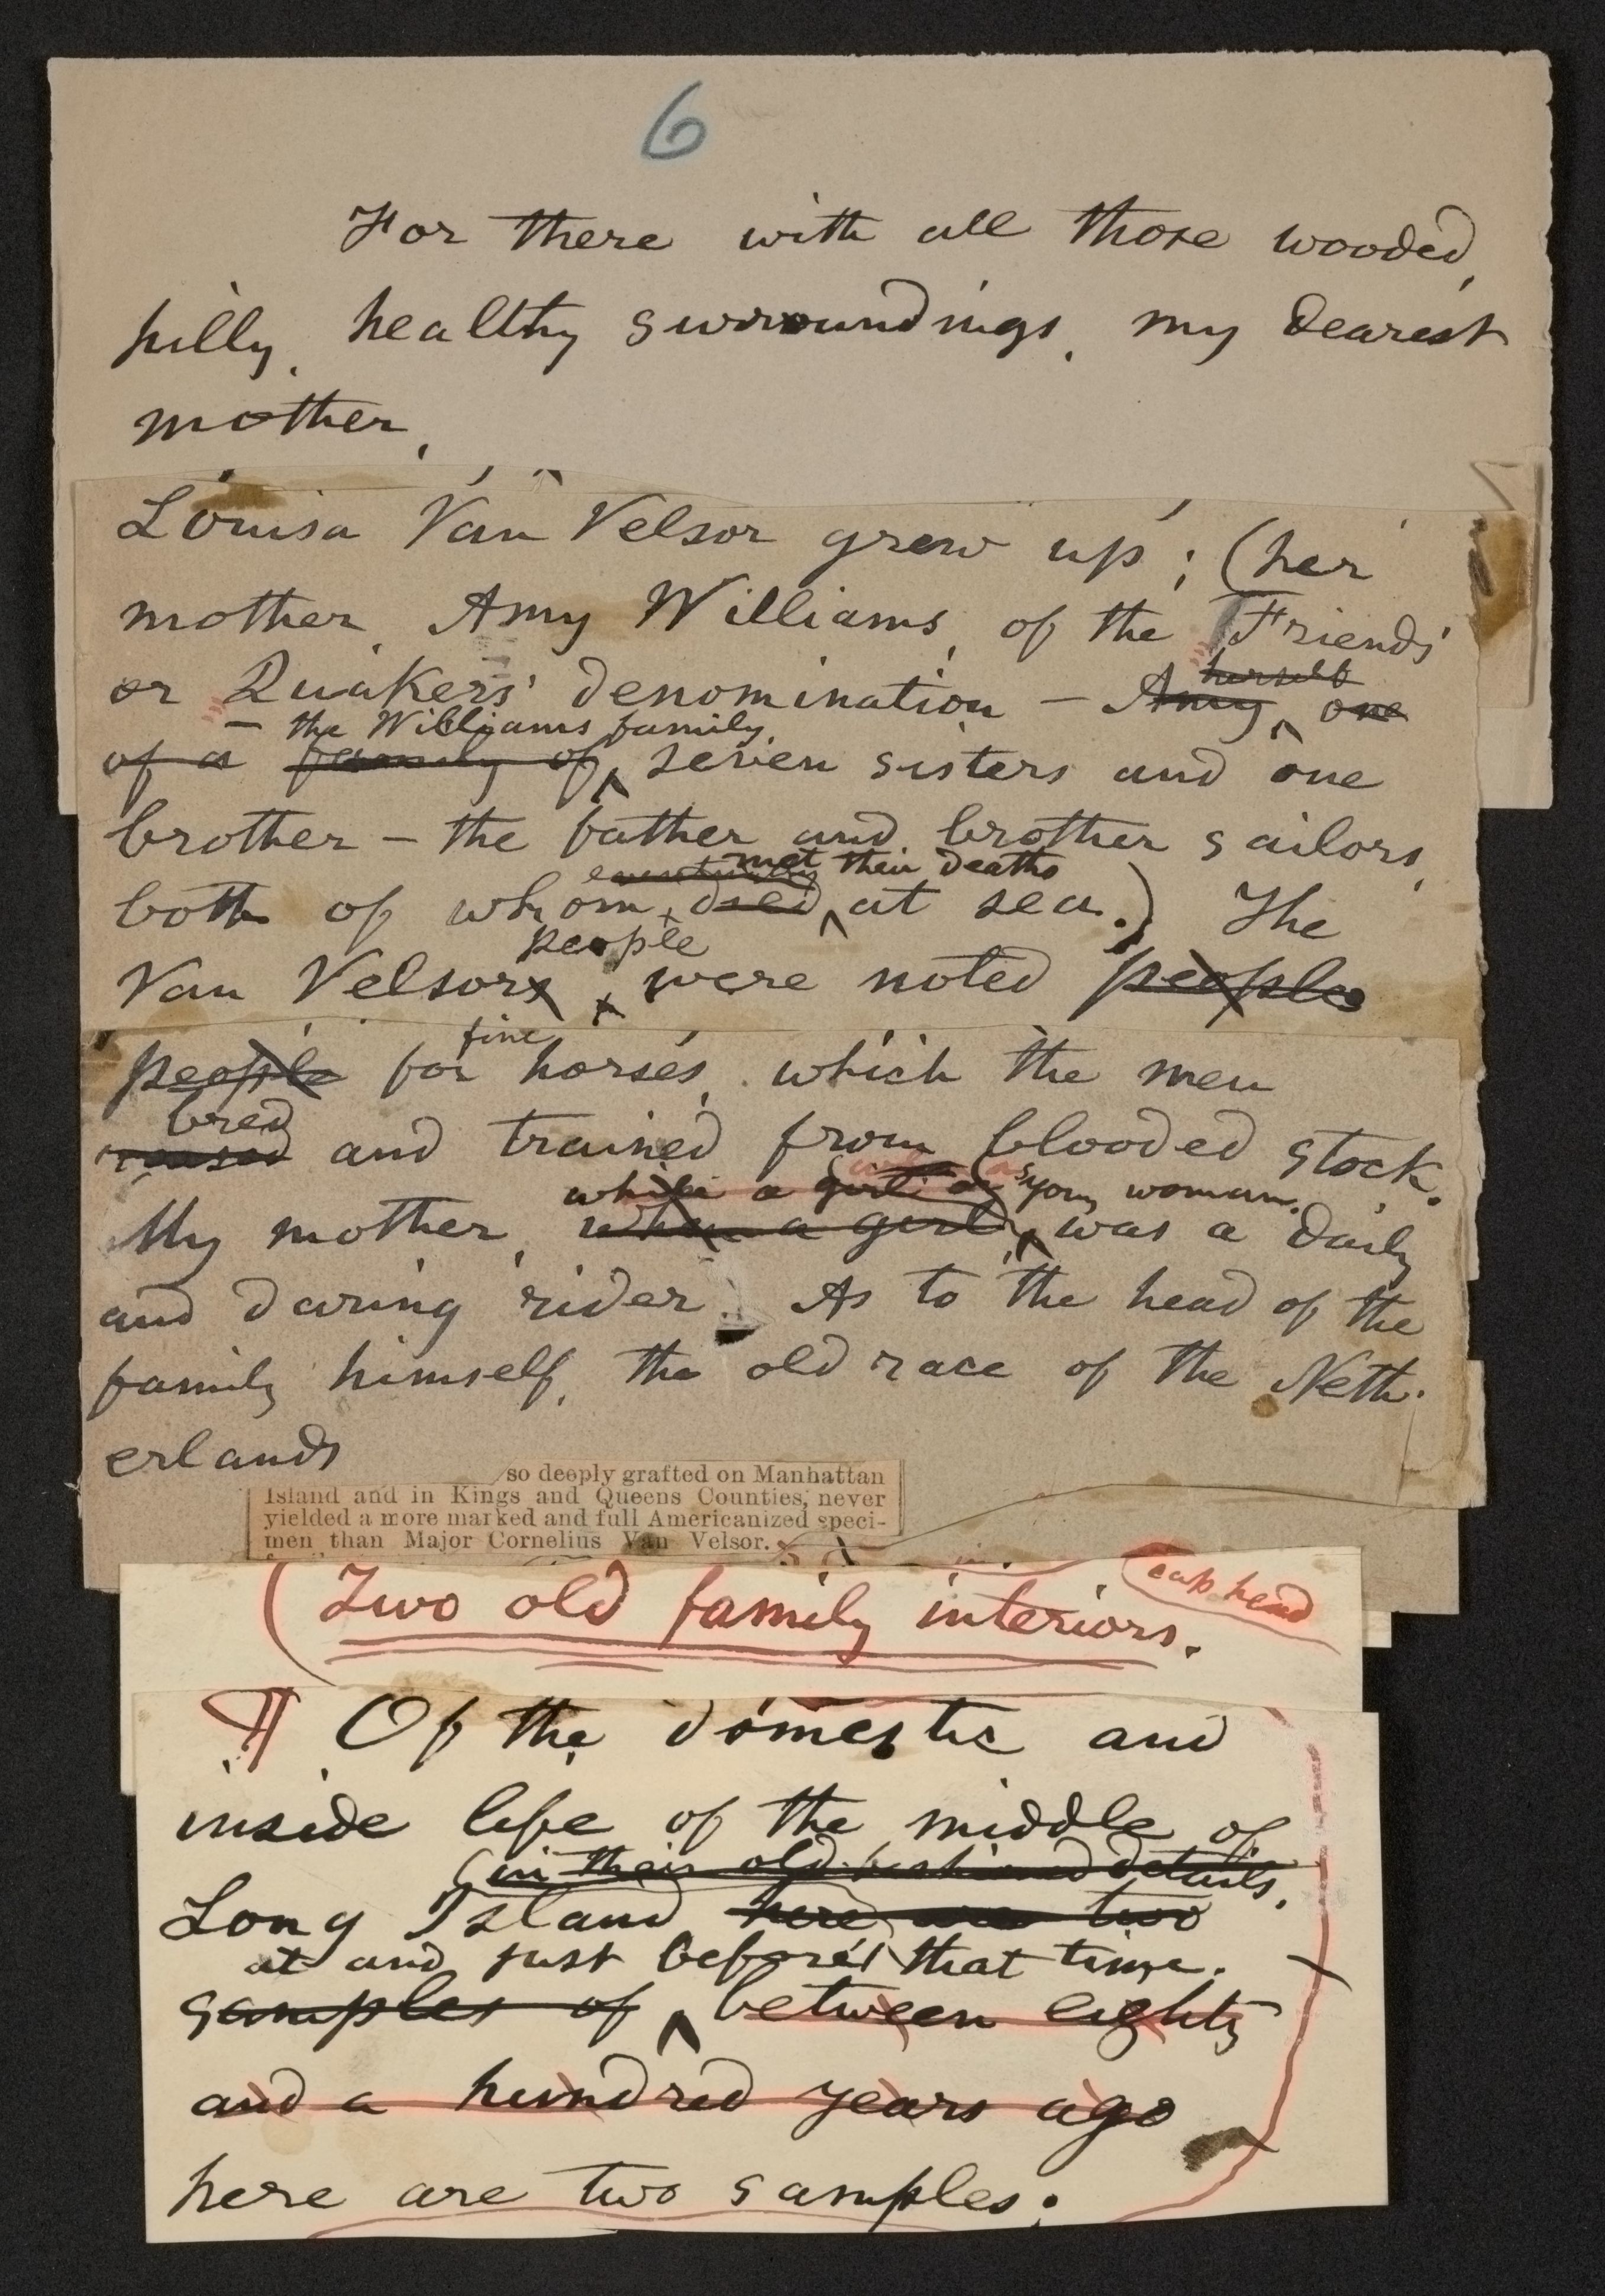 6
For there with all those wooded,
hilly, healthy surroundings, my dearest
mother,
Louisa Van Velsor grew up; (her
mother, Amy Williams, of the Friends'
or Quakers' denomination — Amy, one
herself
— the Williams family,
of a family of seven sisters and one
brother — the father and brother sailors,
eventually met their deaths
both of whom died at sea.) The
people
Van Velsors were noted people
fine
people for horses, which the men
bred
raised and trained from blooded stock.
while a girl or as young woman,
My mother, when a girl, was a daily
and daring rider. As to the head of the
family himself, the old race of the Neth-
erlands
so deeply grafted on Manhattan
Island and in Kings and Queens Counties, never
yielded a more marked and full Americanized speci-
men than Major Cornelius Van Velsor.
(Two old family interiors.
cap. head
¶ Of the domestic and
inside life of the middle of
(in their old-fashioned details,
Long Island here are two
at and just before that time,
samples of between eighty
and a hundred years ago
here are two samples: